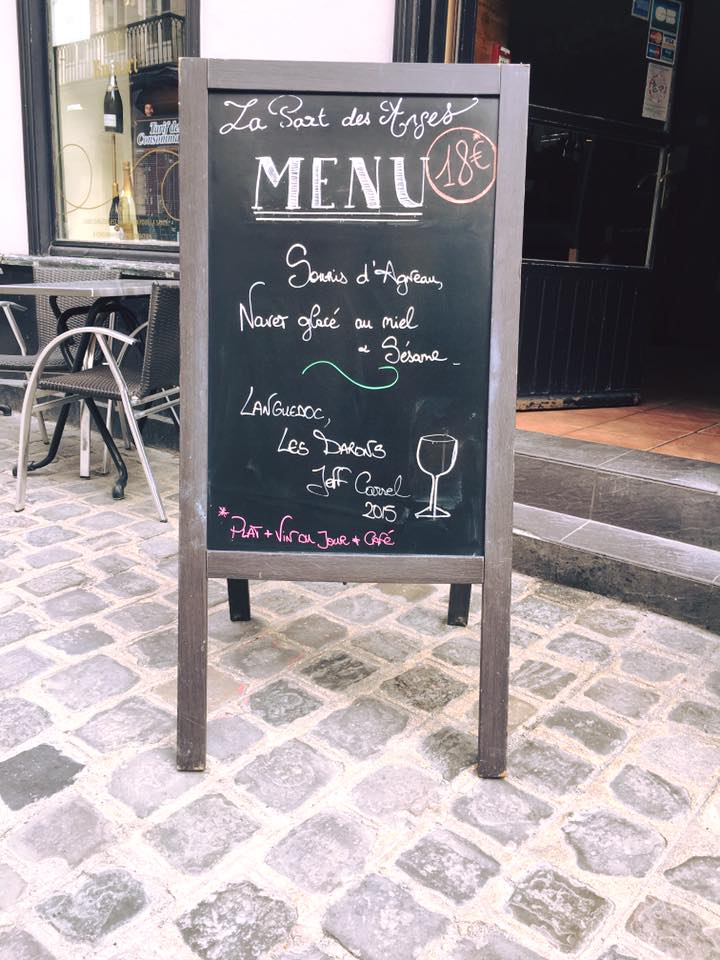 La Part des Anges
MENU
18€*
Souris d'Agneau,
Navet glacé au miel
& Sésame
LANGUEDOC,
LES DARONS
Jeff Carrel
2015
* PLAT + VIN du JOUR + CAFÉ
Tarif des